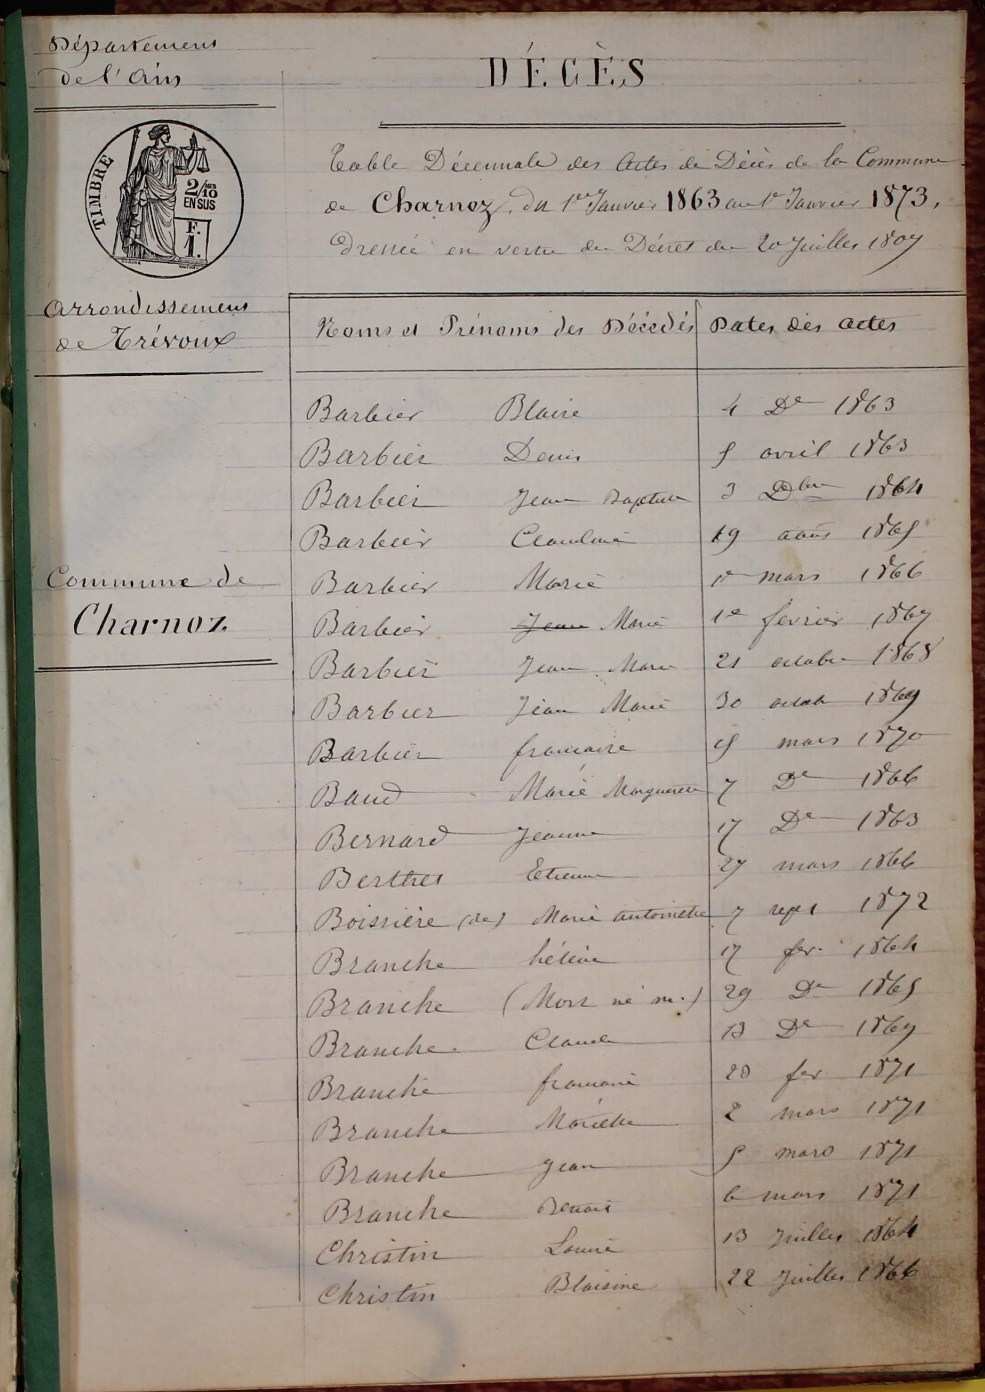 Département
de l'Ain
TIMBRE
2/10
EN SUS
F.
1.
Arrondissement
de Trévoux
Commune de
Charnoz
DÉCÈS
Table Décennale des Actes de Décès de la Commune
de Charnoz, du 1er Janvier 1863 au 1er Janvier 1873,
dressée en vertu du Décret du 20 Juillet 1807
Noms et Prénoms des Décédés Dates des actes
Barbier Blaise 4 De 1863
Barbier Denis 5 avril 1863
Barbier Jean Baptiste 3 Dbre 1864
Barbier Claudine 19 août 1865
Barbier Marie 1er mars 1866
Barbier Jean Marie 1er février 1867
Barbier Jean Marie 21 octobre 1868
Barbier Jean Marie 30 octob 1869
Barbier françoise mars 1870
Baud Marie Marguerite 7 De 1866
Bernard Jeanne 17 De 1863
Berthet Etienne 27 mars 1866
Boissière (de) Marie antoinette 7 sept 1872
Branche hélène 17 fer. 1864
Branche (Mort né m.) 29 De 1865
Branche Claude 13 De 1869
Branche françoise 28 fer 1871
Branche Mariette 2 mars 1871
Branche Jean 5 mars 1871
Branche Benoit 6 mars 1871
Christin Louise 13 Juillet 1864
Christin Blaisine 22 Juillet 1866